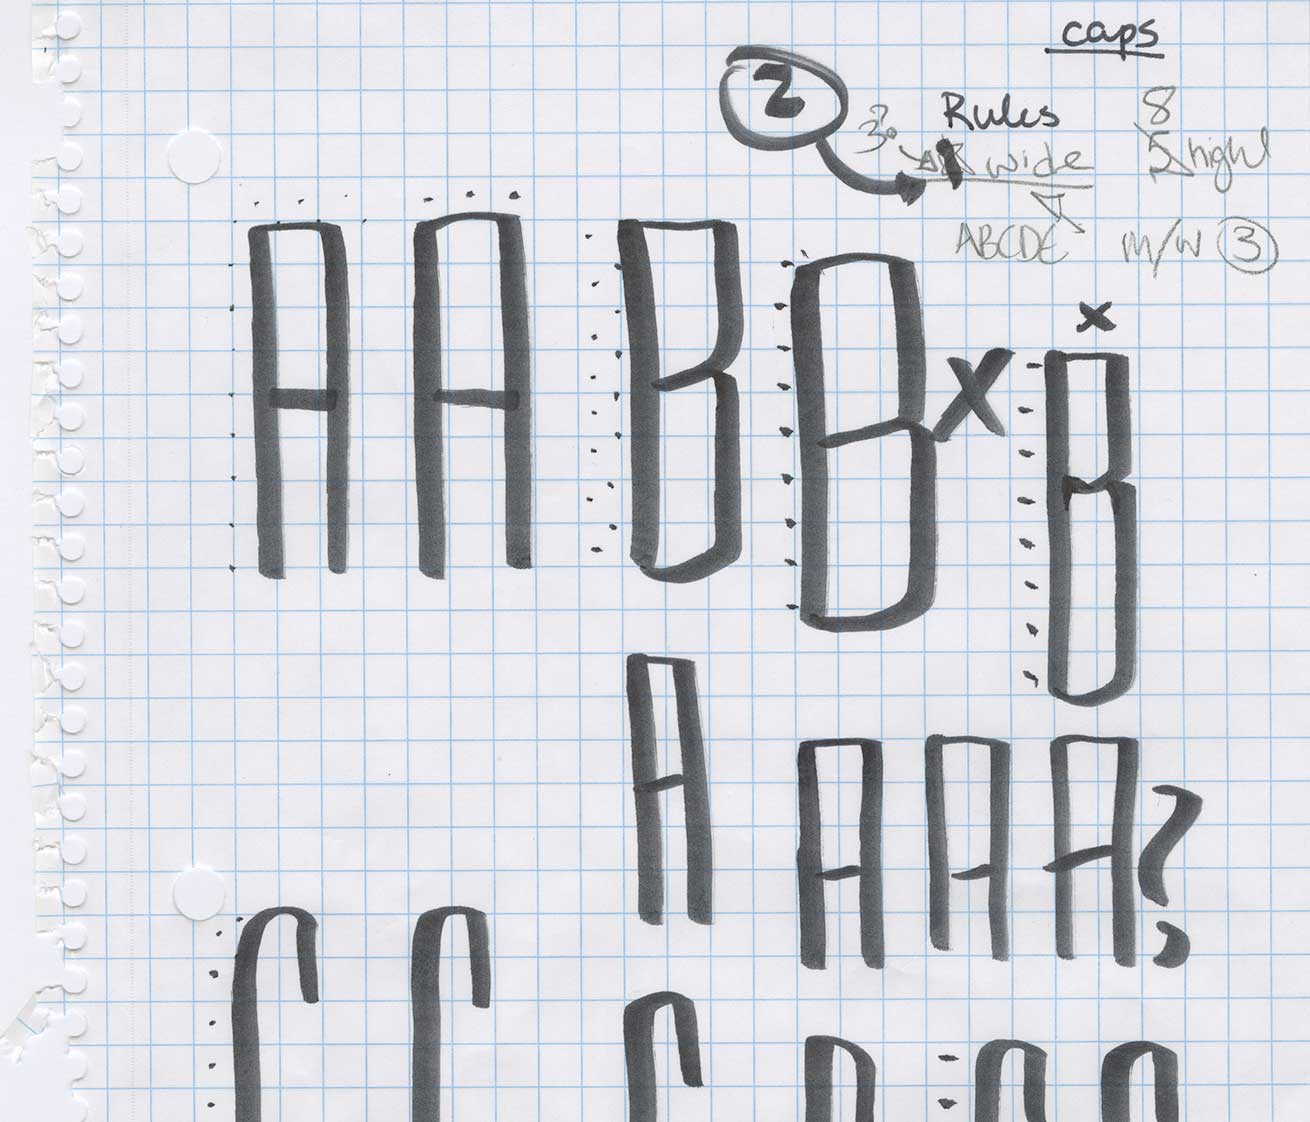 caps
2 Rules 8
3? wide 5 high
ABCDE M/W 3
A A B B x B x
A A A A ?